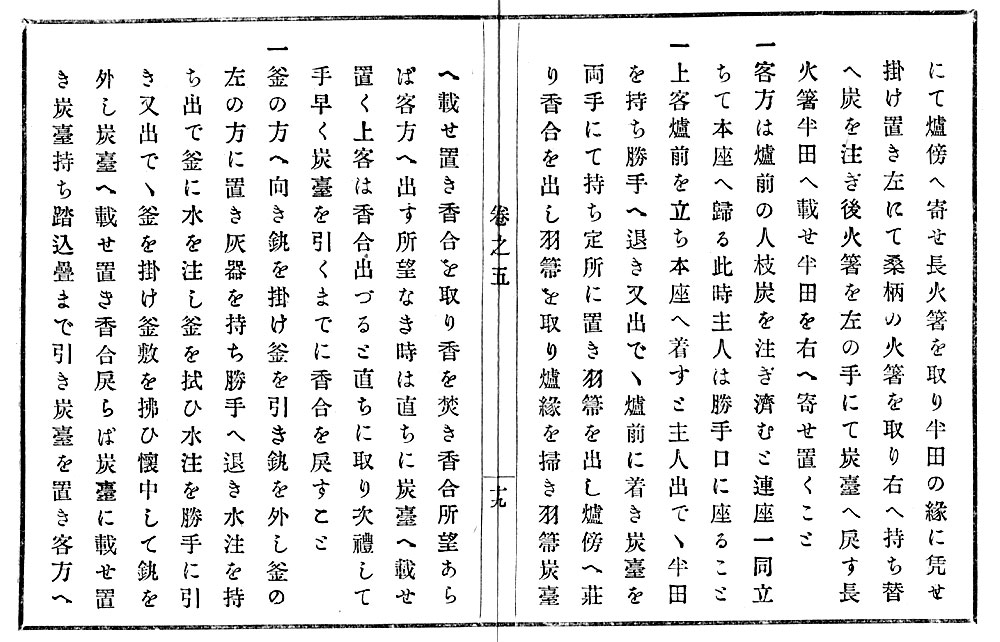 にて爐傍へ寄せ長火箸を取り半田の緣に凭せ
掛け置き左にて桑柄の火箸を取り右へ持ち替
へ炭を注ぎ後火箸を左の手にて炭臺へ戾す長
火箸半田へ載せ半田を右へ寄せ置くこと
一客方は爐前の人枝炭を注ぎ濟むと連座一同立
ちて本座へ歸る此時主人は勝手口に座ること
一上客爐前を立ち本座へ着すと主人出でヽ半田
を持ち勝手へ退き又出でヽ爐前に着き炭臺を
両手にて持ち定所に置き羽箒を出し爐傍へ莊
り香合を出し羽箒を取り爐緣を掃き羽箒炭臺
卷之五
十九
へ載せ置き香合を取り香を焚き香合所望あら
ば客方へ出す所望なき時は直ちに炭臺へ載せ
置く上客は香合出づると直ちに取り次禮して
手早く炭臺を引くまでに香合を戾すこと
一釜の方へ向き釻を掛け釜を引き釻を外し釜の
左の方に置き灰器を持ち勝手へ退き水注を持
ち出で釜に水を注し釜を拭ひ水注を勝手に引
き又出でヽ釜を掛け釜敷を拂ひ懷中して釻を
外し炭臺へ載せ置き香合戾らば炭臺に載せ置
き炭臺持ち踏込疊まで引き炭臺を置き客方へ